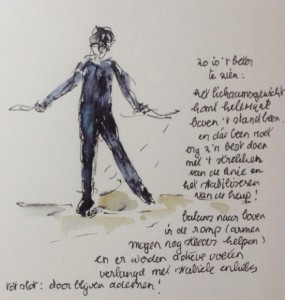 zo is 't beter
te zien:
het lichaamsgewicht
komt helemaal
boven 't standbeen
en dàt been moet
erg z'n best doen
met 't strekken
van de knie en
het stabiliseren
van de heup!
balans naar boven
in de romp (armen
mogen nog steeds helpen)
en er worden actieve voeten
verlangd met stabiele enkels
tot slot: door blijven ademen!